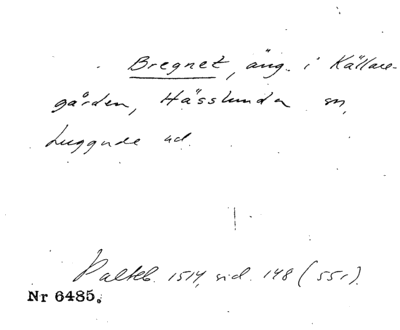 Bregnet, äng i Källare-
gården, Hässlunda sn,
Luggude hd.
Palteb. 1514, sid. 148 (551).
Nr 6485.